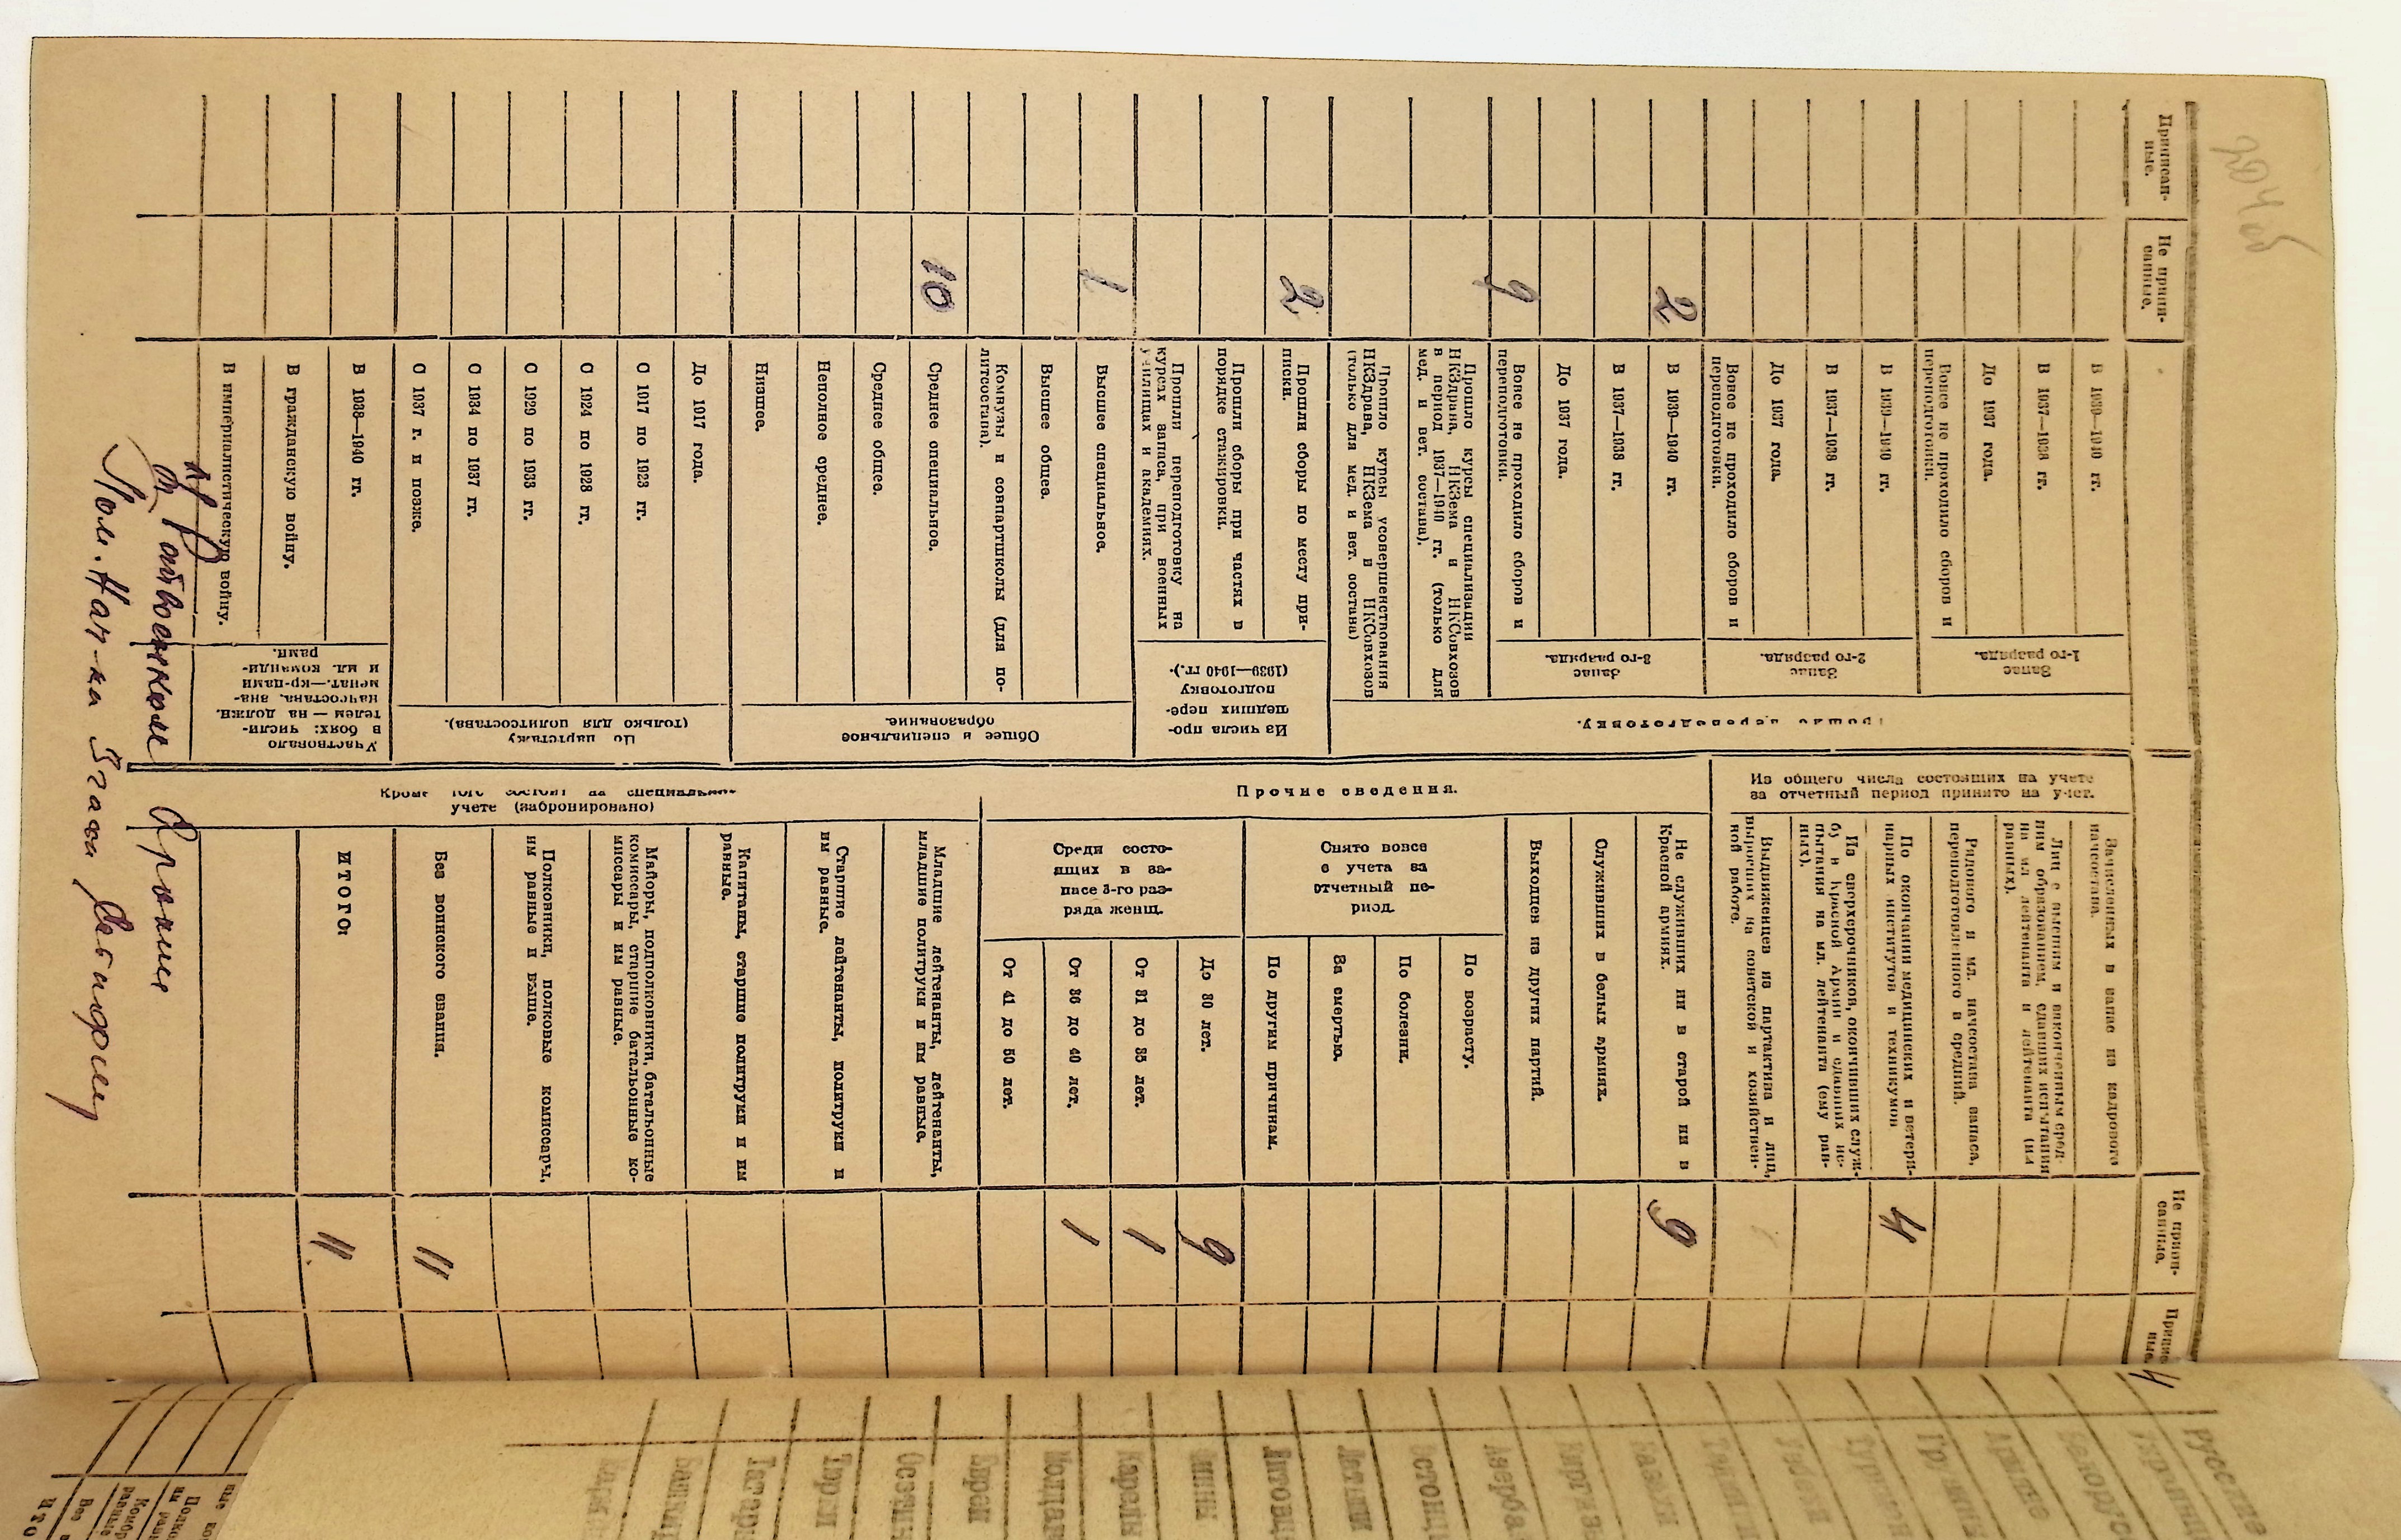 Приписан-
ные.
Не припи-
санные.
Прошло переподготовку.
Запас
1-го разряда.
В 1939—1940 гг.
В 1937—1938 гг.
До 1937 года.
Вовсе не проходило сборов и
переподготовки.
Запас
2-го разряда.
В 1939—1940 гг.
В 1937—1938 гг.
До 1937 года.
Вовсе не проходило сборов и
переподготовки.
Запас
3-го разряда.
В 1939—1940 гг.
2
В 1937—1938 гг.
До 1937 года.
Вовсе не проходило сборов и
переподготовки.
9
Прошло курсы специализации
НКЗдрава, НКЗема и НКСовхозов
в период 1937—1940 гг. (только для
мед. и вет. состава).
Прошло курсы усовершенствования
НКЗдрава, НКЗема и НКСовхозов
(только для мед. и вет. состава)
Из числа про-
шедших пере-
подготовку
(1939—1940 гг.).
Прошли сборы по месту при-
писки.
2
Прошли сборы при частях в
порядке стажировки.
Прошли переподготовку на
курсах запаса, при военных
училищах и академиях.
Общее и специальное
образование.
Высшее специальное.
1
Высшее общее.
Комвузы и совпартшколы (для по-
литсостава).
Среднее специальное.
10
Среднее общее.
Неполное среднее.
Низшее.
По партстажу
(только для политсостава).
До 1917 года.
С 1917 по 1923 гг.
С 1924 по 1928 гг.
С 1929 по 1933 гг.
С 1934 по 1937 гг.
С 1937 г. и позже.
Участвовало
в боях: числи-
телем — на должн.
начсостава, зна-
менат.—кр-цами
и мл. команди-
рами.
В 1938—1940 гг.
В гражданскую войну.
В империалистическую войну.
Из общего числа состоящих на учете
за отчетный период принято на учет.
Зачисленных в запас из кадрового
начсостава.
Лиц с высшим и законченным сред-
ним образованием, сдавших испытания
на мл. лейтенанта и лейтенанта (им
равных).
Рядового и мл. начсостава запаса,
переподготовленного в средний.
По окончании медицинских и ветери-
нарных институтов и техникумов
4
Из сверхсрочников, окончивших служ-
бу в Красной Армии и сдавших ис-
пытания на мл. лейтенанта (ему рав-
ных).
Выдвиженцев из партактива и лиц,
выросших на советской и хозяйствен-
ной работе.
Прочие сведения.
Не служивших ни в старой ни в
Красной армиях.
9
Служивших в белых армиях.
Выходцев из других партий.
Снято вовсе
с учета за
отчетный пе-
риод.
По возрасту.
По болезни.
За смертью.
По другим причинам.
Среди состо-
ящих в за-
пасе 3-го раз-
ряда женщ.
До 30 лет.
9
От 31 до 35 лет.
1
От 36 до 40 лет.
1
От 41 до 50 лет.
Кроме того состоит на специальном
учете (забронировано)
Младшие лейтенанты, лейтенанты,
младшие политруки и им равные.
Старшие лейтенанты, политруки и
им равные.
Капитаны, старшие политруки и им
равные.
Майоры, подполковники, батальонные
комиссары, старшие батальонные ко-
миссары и им равные.
Полковники, полковые комиссары,
им равные и выше.
Без воинского звания.
11
ИТОГО:
11
Не припи-
санные.
4
Райвоенком
Пом. Нач-ка